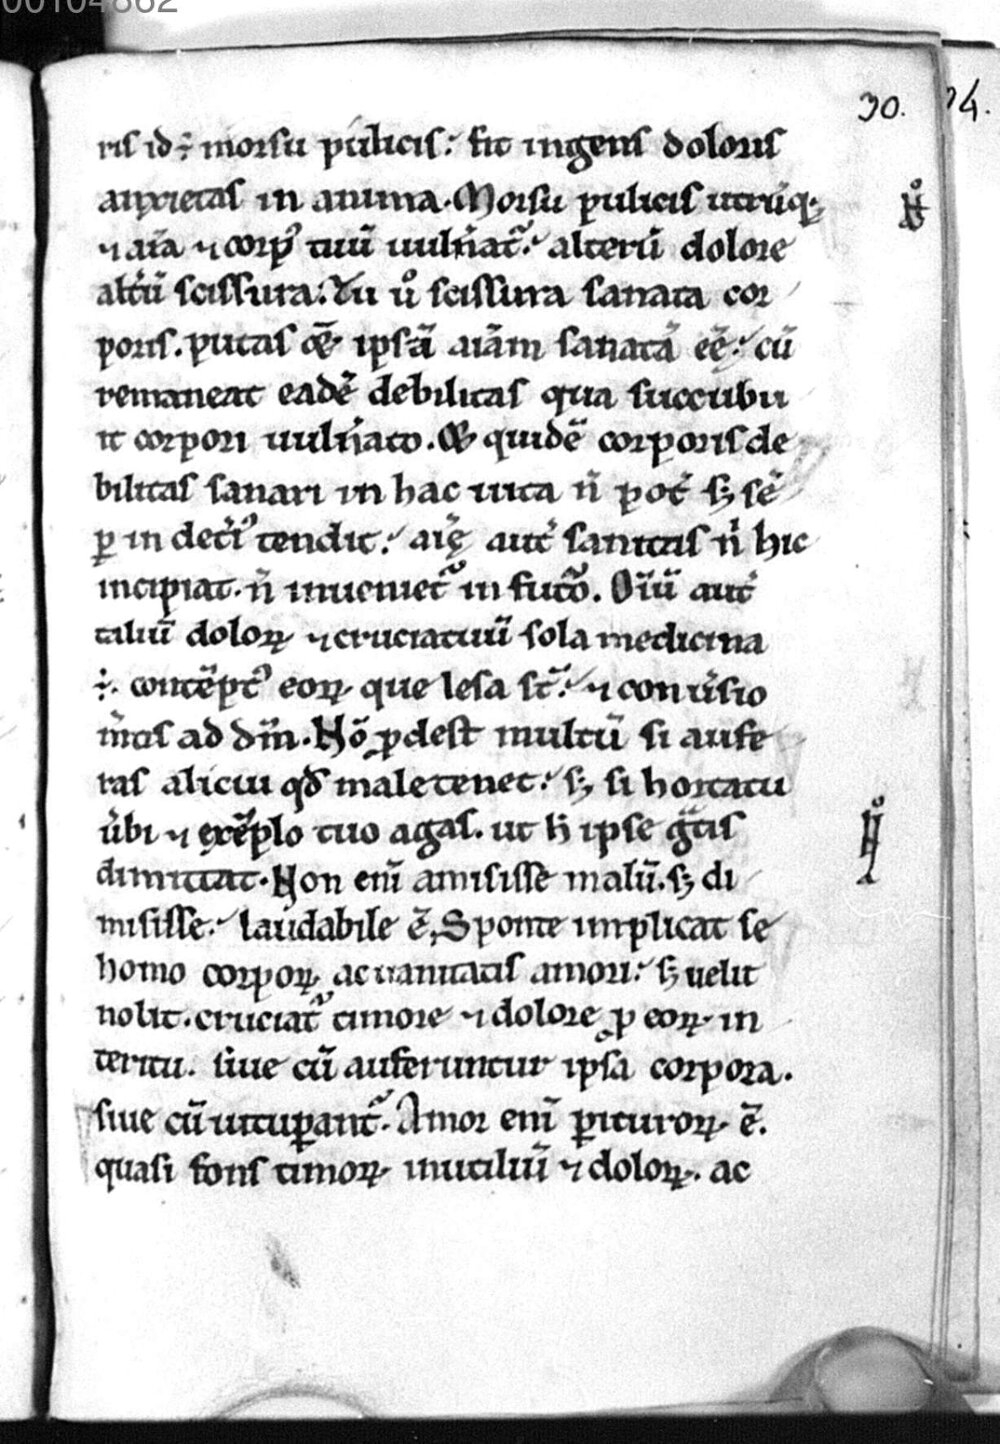 00104862
30. 34.
ris id ÷ morsu pulicis: fit ingens doloris
anxietas in anima. Morsu pulicis utrūq;
⁊ aīa ⁊ corpꝰ tuū uulnāt᷑: alterū dolore
alt̄ū scissura. Tu ů scissura sanata cor
poris. putas c̄e ipsā aīam sanatā ēē: cū
remaneat eadē debilitas qua succubu
it corpori uulnāto. Et quidē corporis de
bilitas sanari in hac uita n̄ potē s; sē
ꝑ in det̄iꝰ tendit: aīę aut̄ sanitas nͥ hic
incipiat. n̄ inueniet᷑ in futō. Oīū aut̄
taliū doloꝝ ⁊ cruciatuū sola medicina
÷. contēptꝰ eoꝝ que lesa st̄: ⁊ conūsio
m̄tis ad dm̄. Nō ꝓdest multū si aufe
ras alicui qđ male tenet: s; si hortatu
ūbi ⁊ exēplo tuo agas. ut h̄ ipse gͣtis
dimittat. Non eni᷑ amisisse malū. s; di
misisse: laudabile ē. Sponte implicat se
homo corpoꝝ ac uanitatis amori: s; uelit
nolit. cruciat᷑ timore ⁊ dolore ꝓ eoꝝ in
teritu. siue cū auferuntur ipsa corpora.
siue cū uituꝑant᷑. Amor eni᷑ ꝑituroꝝ ē.
quasi fons timoꝝ inutiliū ⁊ doloꝝ. ac